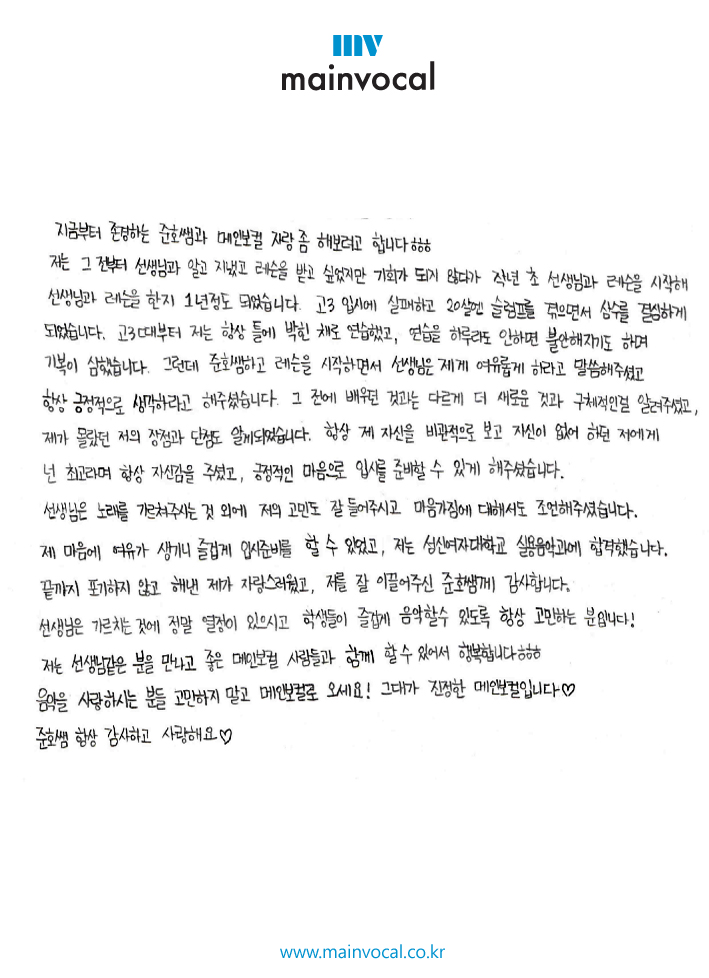 mv
mainvocal
지금부터 존경하는 준호쌤과 메인보컬 자랑 좀 해보려고 합니다ㅎㅎㅎ
저는 그 전부터 선생님과 알고 지냈고 레슨을 받고 싶었지만 기회가 되지 않다가 작년 초 선생님과 레슨을 시작해
선생님과 레슨을 한지 1년정도 되었습니다. 고3 입시에 실패하고 20살엔 슬럼프를 겪으면서 삼수를 결심하게
되었습니다. 고3때부터 저는 항상 틀에 박힌 채로 연습했고, 연습을 하루라도 안하면 불안해지기도 하며
기복이 심했습니다. 그런데 준호쌤하고 레슨을 시작하면서 선생님은 제게 여유롭게 하라고 말씀해주셨고
항상 긍정적으로 생각하라고 해주셨습니다. 그 전에 배우던 것과는 다르게 더 새로운 것과 구체적인걸 알려주셨고,
제가 몰랐던 저의 장점과 단점도 알게되었습니다. 항상 제 자신을 비관적으로 보고 자신이 없어 하던 저에게
넌 최고라며 항상 자신감을 주셨고, 긍정적인 마음으로 입시를 준비할 수 있게 해주셨습니다.
선생님은 노래를 가르쳐주시는 것 외에 저의 고민도 잘 들어주시고 마음가짐에 대해서도 조언해주셨습니다.
제 마음에 여유가 생기니 즐겁게 입시준비를 할 수 있었고, 저는 성신여자대학교 실용음악과에 합격했습니다.
끝까지 포기하지 않고 해낸 제가 자랑스러웠고, 저를 잘 이끌어주신 준호쌤께 감사합니다.
선생님은 가르치는것에 정말 열정이 있으시고 학생들이 즐겁게 음악할수 있도록 항상 고민하는 분입니다!
저는 선생님같은 분을 만나고 좋은 메인보컬 사람들과 함께 할 수 있어서 행복합니다ㅎㅎㅎ
음악을 사랑하시는 분들 고민하지 말고 메인보컬로 오세요! 그대가 진정한 메인보컬입니다♡
준호쌤 항상 감사하고 사랑해요♡
www.mainvocal.co.kr